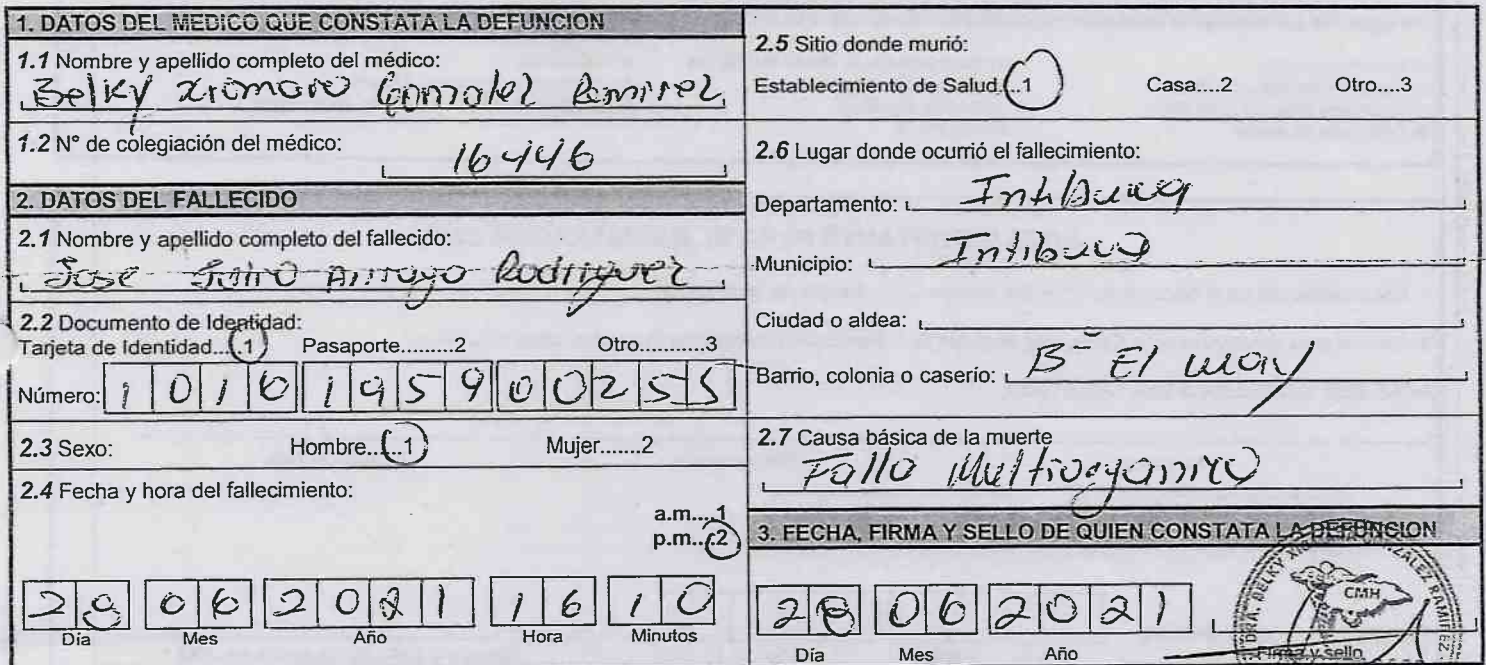 1. DATOS DEL MEDICO QUE CONSTATA LA DEFUNCION
1.1 Nombre y apellido completo del médico:
Belky Xiomara Gonzalez Ramirez
1.2 N° de colegiación del médico:
16446
2. DATOS DEL FALLECIDO
2.1 Nombre y apellido completo del fallecido:
Jose Jairo Arroyo Rodriguez
2.2 Documento de Identidad:
Tarjeta de Identidad.....1 Pasaporte.........2 Otro...........3
Número: 1016 1959 00255
2.3 Sexo: Hombre.....1 Mujer.......2
2.4 Fecha y hora del fallecimiento:
a.m....1
p.m...2
28 06 2021 16 10
Día Mes Año Hora Minutos
2.5 Sitio donde murió:
Establecimiento de Salud...1 Casa....2 Otro....3
2.6 Lugar donde ocurrió el fallecimiento:
Departamento: Intibuca
Municipio: Intibuca
Ciudad o aldea:
Barrio, colonia o caserío: B El
2.7 Causa básica de la muerte
Fallo Multiorganico
3. FECHA, FIRMA Y SELLO DE QUIEN CONSTATA LA DEFUNCION
28 06 2021
Día Mes Año
DRA. BELKY GONZALEZ RAMIREZ
CMH
Firma y sello